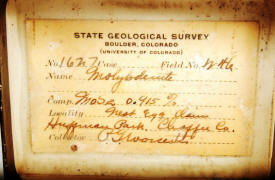 STATE GEOLOGICAL SURVEY
BOULDER, COLORADO
(UNIVERSITY OF COLORADO)
No. Case Field No.
Name Molybdenite
Comp. MoS2 0.915 %
Locality Nest Egg Claim
Huffman Park. Chaffee Co.
Collector P.G. Worcester